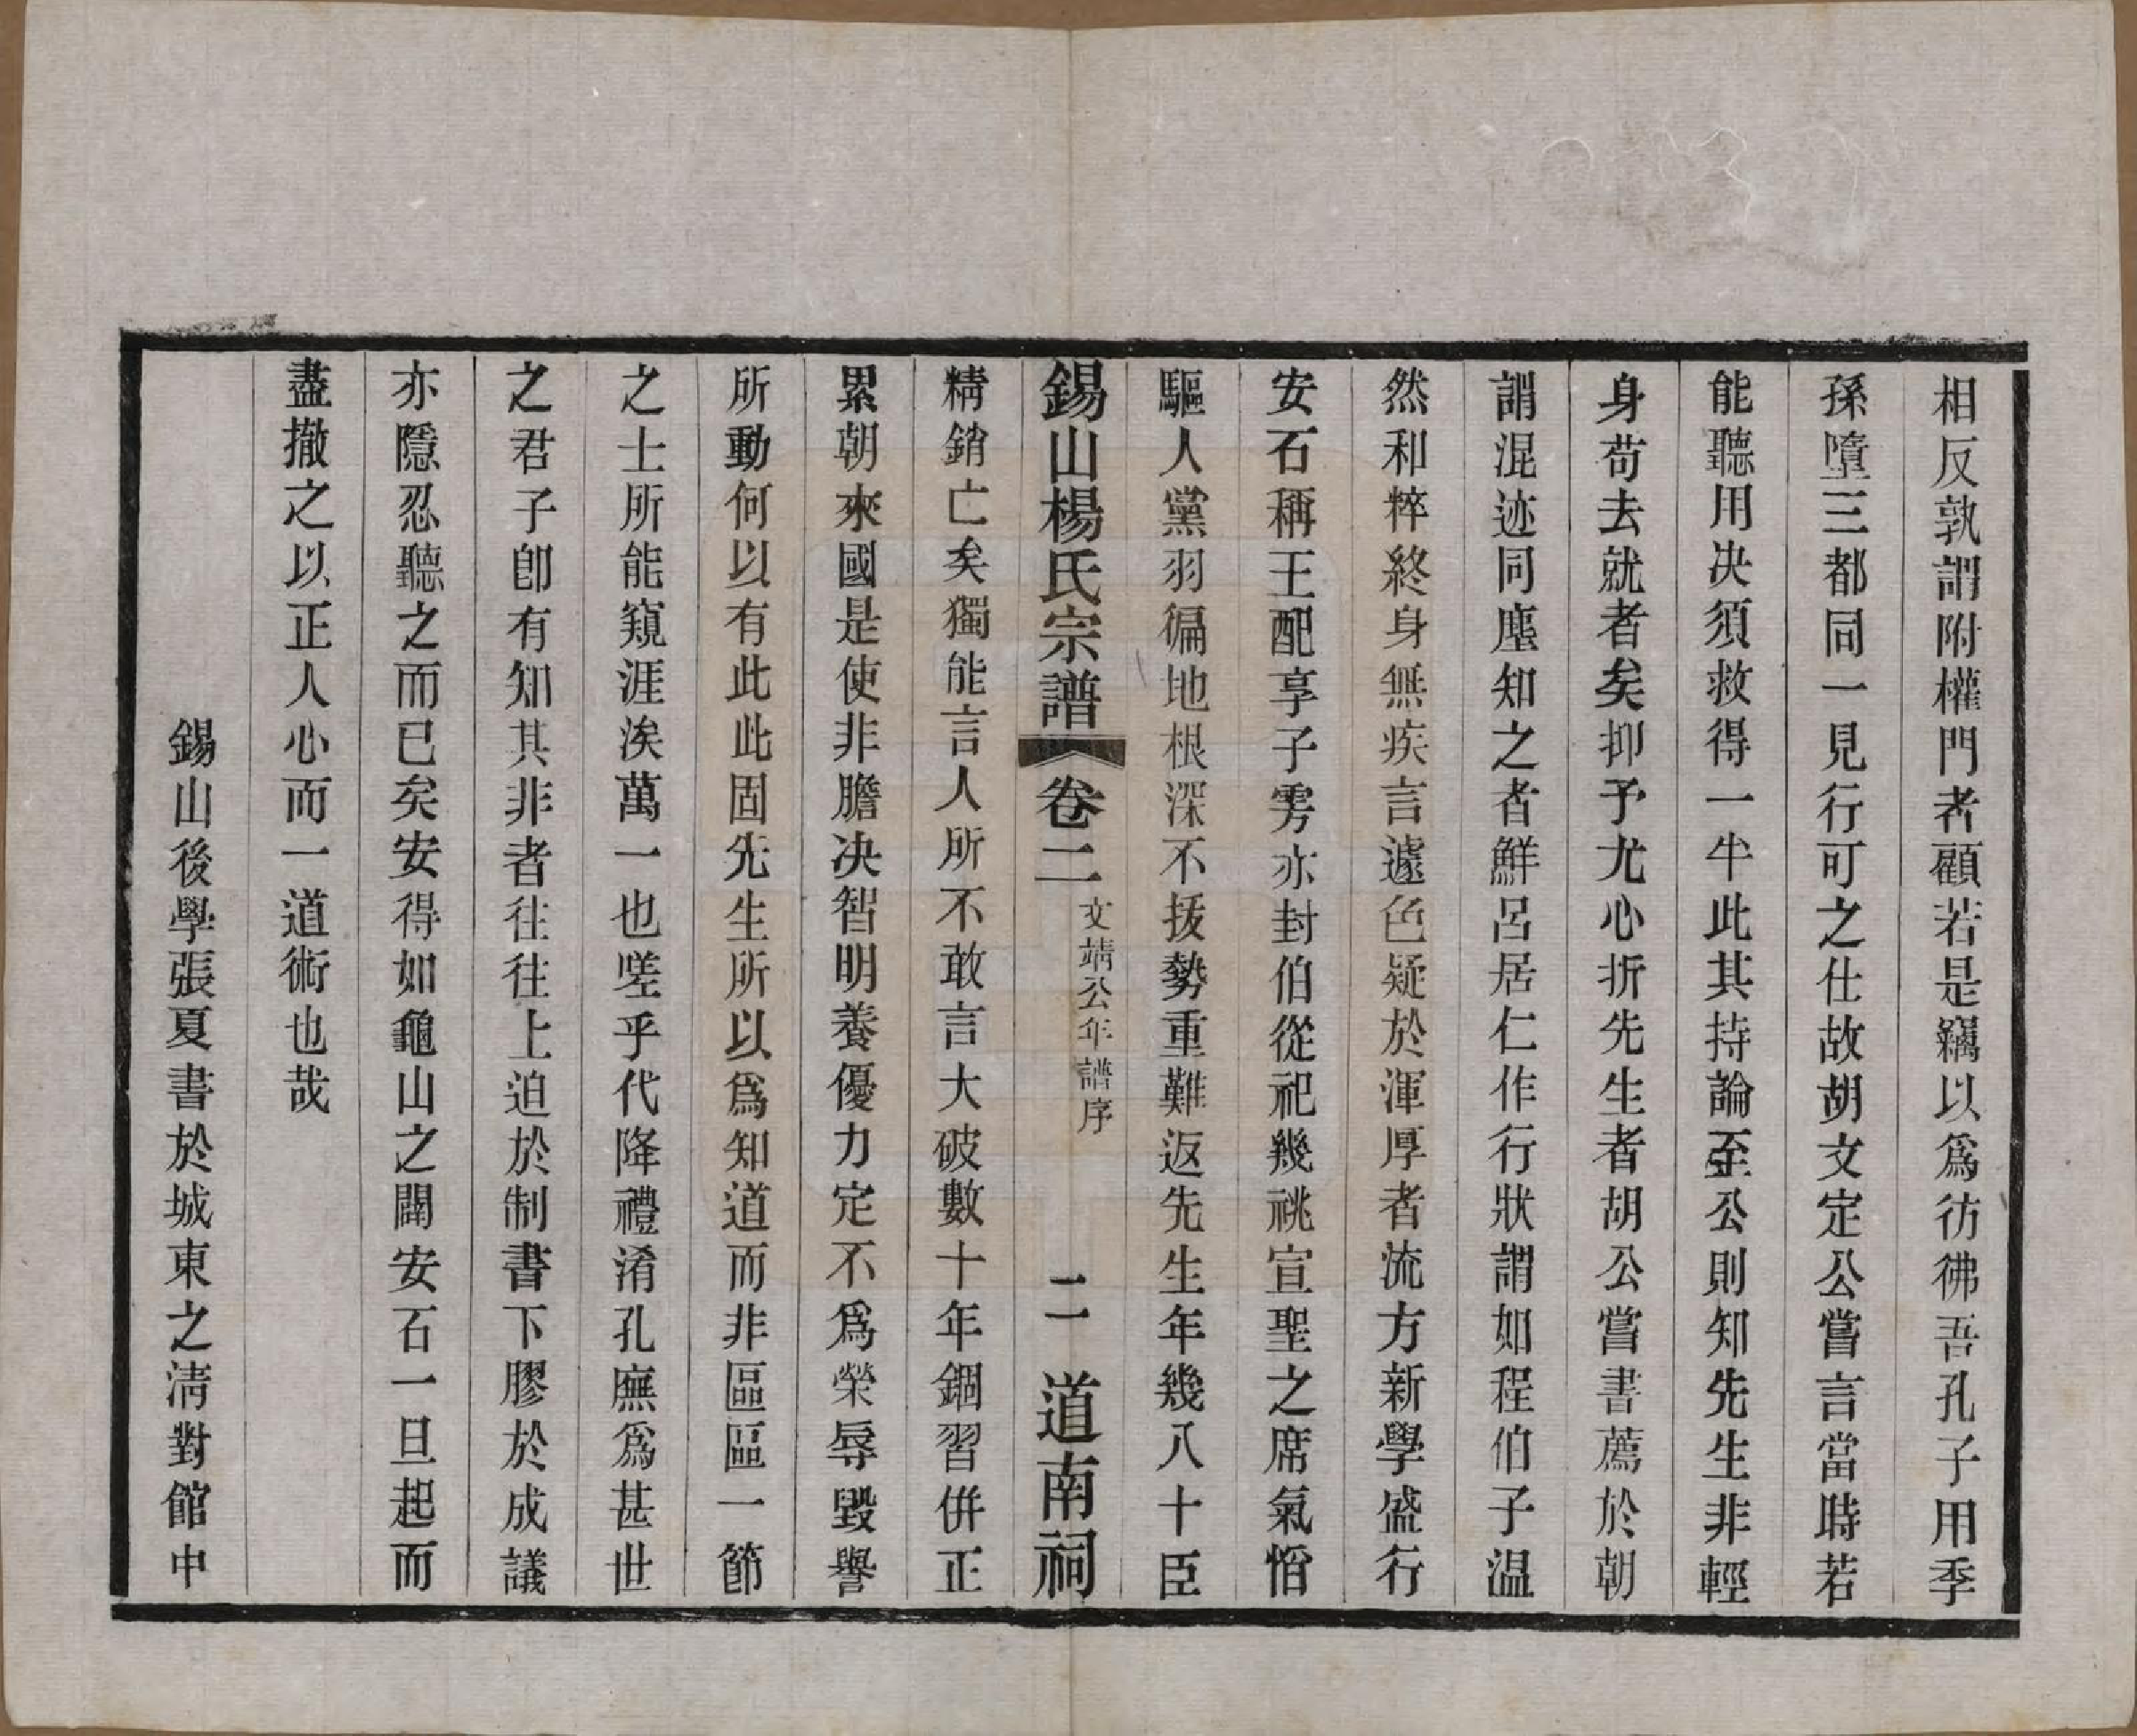 相反孰謂附權門者顧若是竊以爲彷彿吾孔子用季
孫墮三都同一見行可之仕故胡文定公嘗言當時若
能聽用决須救得一半此其持論至公則知先生非輕
身苟去就者矣抑予尤心折先生者胡公嘗書薦於朝
謂混迹同塵知之者鮮呂居仁作行狀謂如程伯子温
然和粹終身無疾言遽色疑於渾厚者流方新學盛行
安石稱王配享子雱亦封伯從祀幾祧宣聖之席氣惛
驅人黨羽徧地根深不拔勢重難返先生年幾八十臣
錫山楊氏宗譜 卷二 文靖公年譜序 二 道南祠
精銷亡矣獨能言人所不敢言大破數十年錮習併正
累朝來國是使非膽决智明養優力定不爲榮辱毀譽
所動何以有此此固先生所以爲知道而非區區一節
之士所能窺涯涘萬一也嗟乎代降禮淆孔廡爲甚世
之君子卽有知其非者往往上迫於制書下膠於成議
亦隱忍聽之而已矣安得如龜山之闢安石一旦起而
盡撤之以正人心而一道術也哉
錫山後學張夏書於城東之清對館中